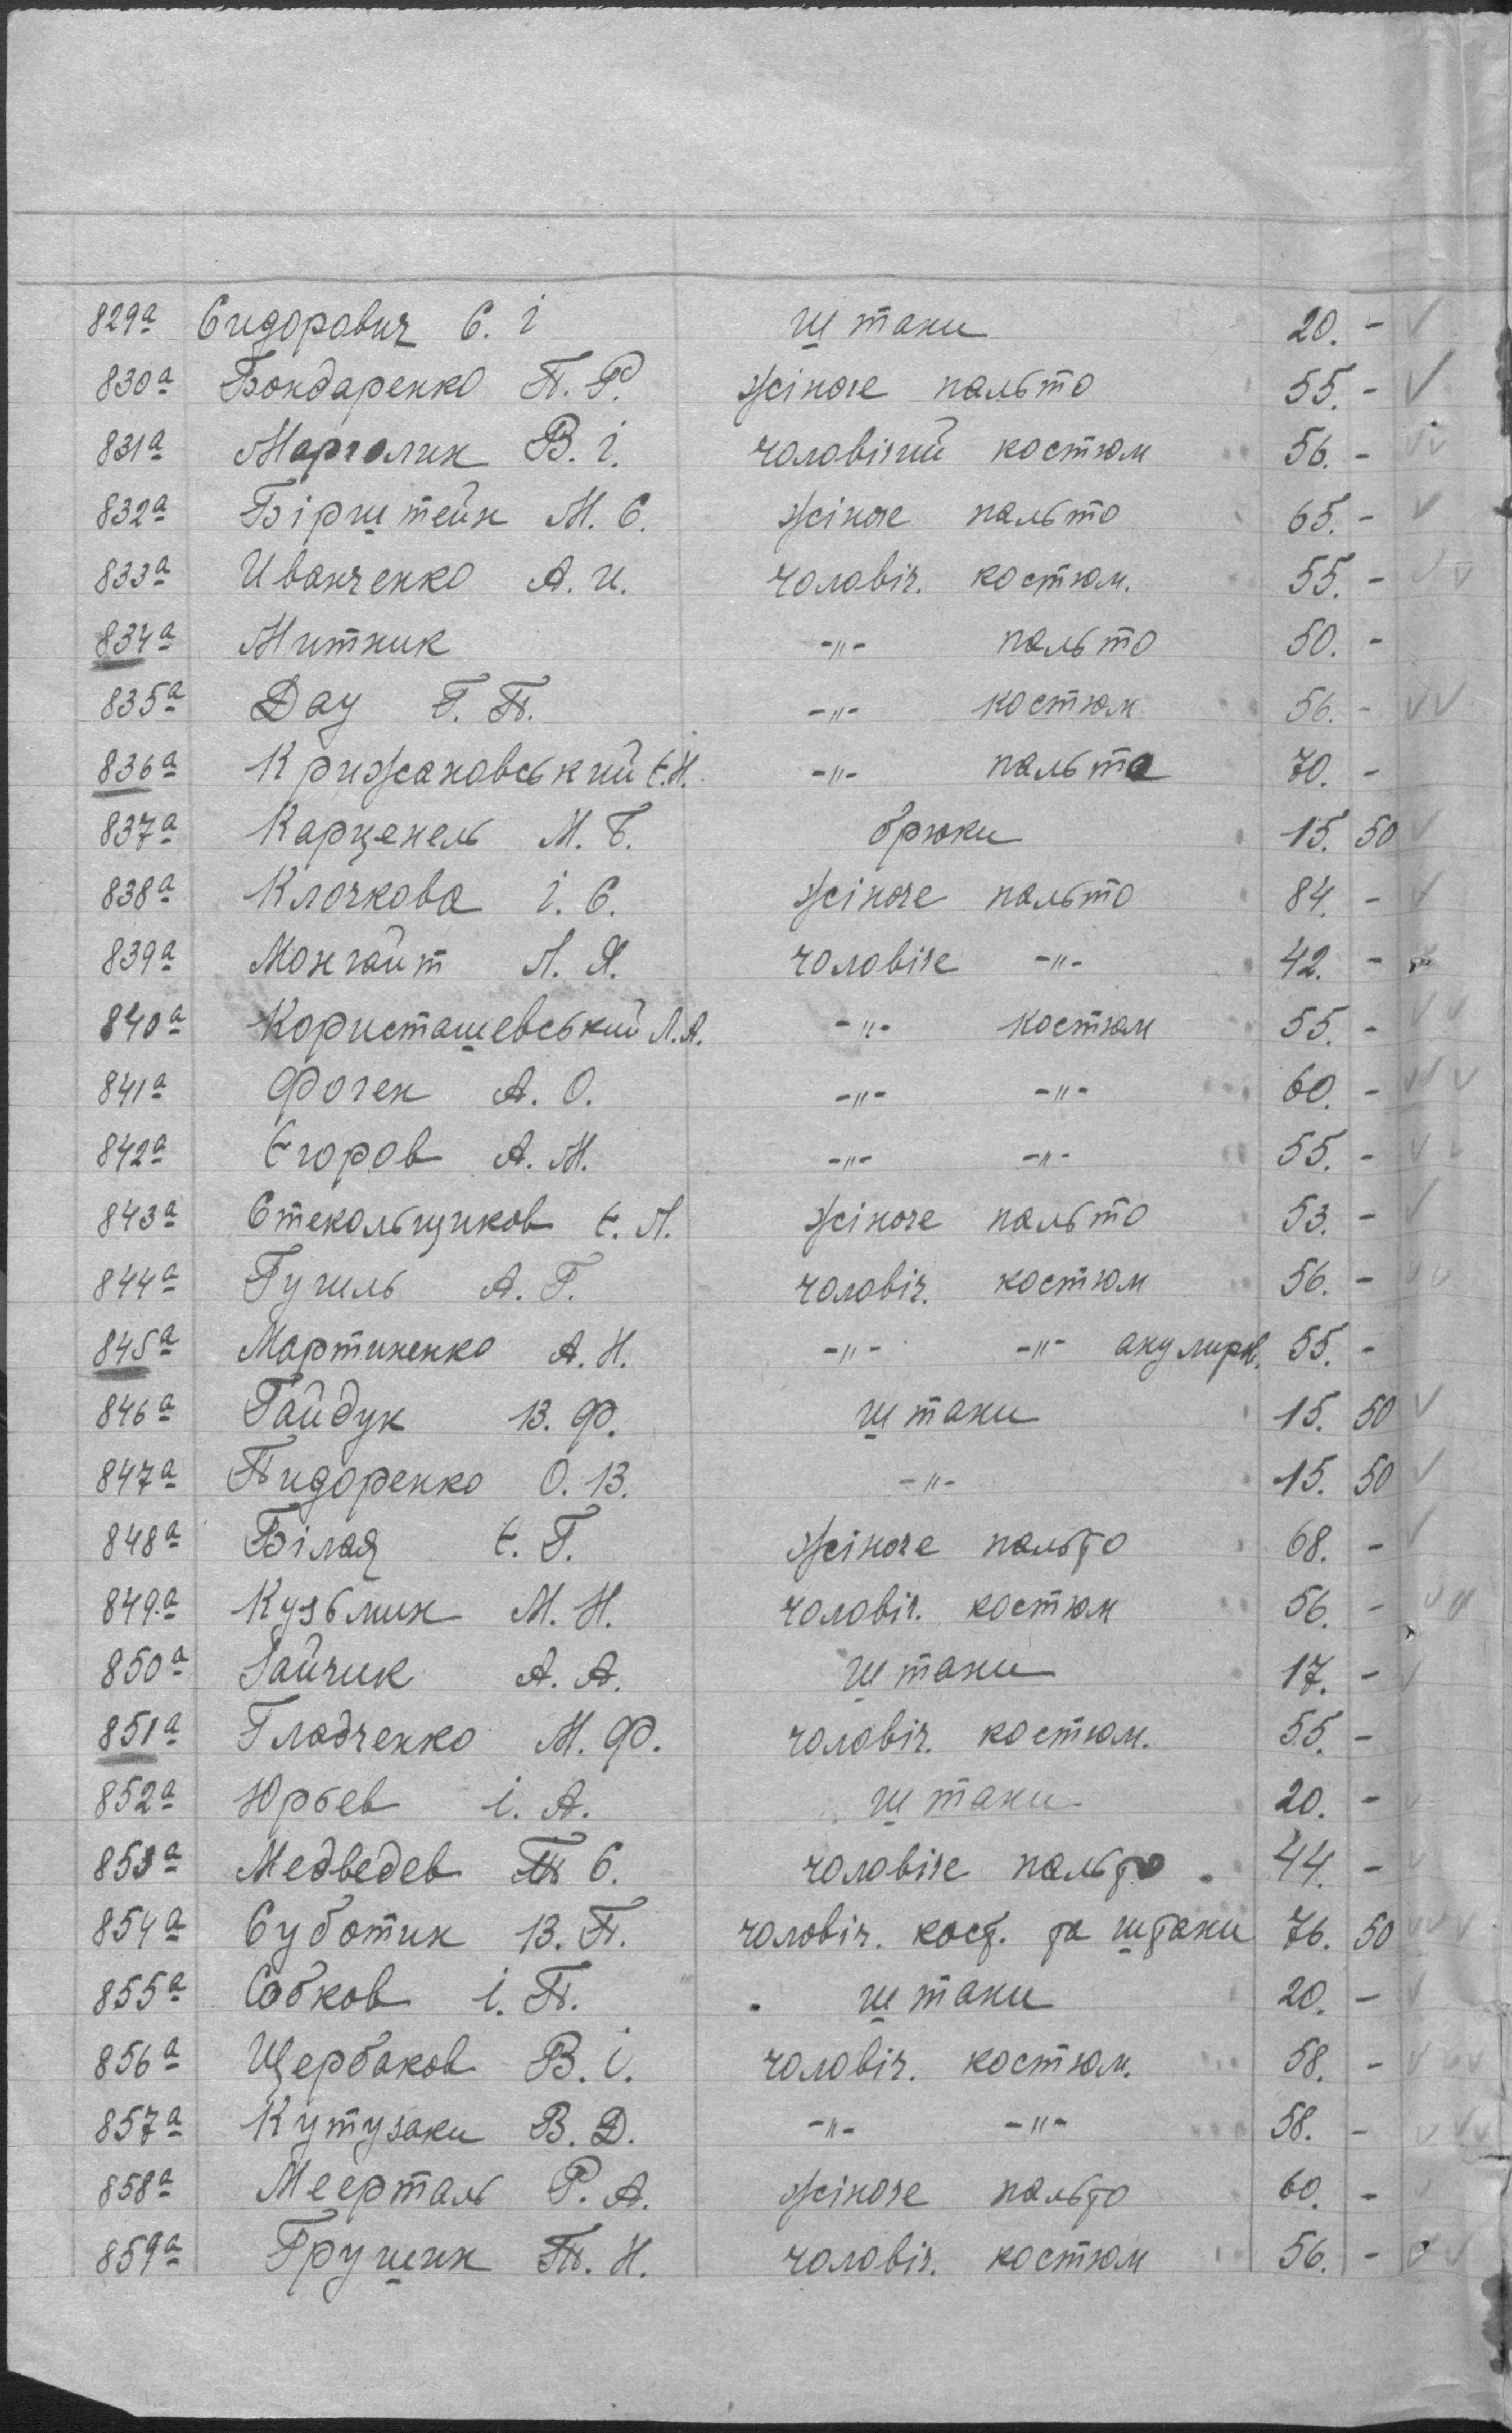 829а Сидорович С. і штани 20. -
830а Бондаренко П. Р. жіноче пальто 55. -
831а Марголин В. і. чоловічий костюм 56. -
832а Бірштейн М. С. жіноче пальто 65. -
833а Иванченко А. И. чоловіч. костюм. 55. -
834а Митник -"- пальто 50. -
835а Дау Г. П. -"- костюм 56. -
836а Крижановський Є. Н. -"- пальто 70. -
837а Карценель М. Б. брюки 15. 50
838а Клочкова і. С. жіноче пальто 84. -
839а Монгайт Л. Я. чоловіче -"- 42. -
840а Користашевський Л. А. -"- костюм 55. -
841а Фоген А. О. -"- -"- 60. -
842а Єгоров А. М. -"- -"- 55. -
843а Стекольщиков Є. Л. жіноче пальто 53. -
844а Гугиль А. Г. чоловіч. костюм 56. -
845а Мартиненко А. Н. -"- -"- анулиров. 55. -
846а Гайдук В. Ф. штани 15. 50
847а Пидоренко О. В. -"- 15. 50
848а Білая Є. Г. жіноче пальто 68. -
849.а Кузьмин М. Н. чоловіч. костюм 56. -
850а Зайчик А. А. штани 17. -
851а Гладченко М. Ф. чоловіч. костюм. 55. -
852а Юрьев і. А. штани 20. -
853а Медведев П С. чоловіче пальто 44. -
854а Суботин В. П. чоловіч. кост. та штани 76. 50
855а Собков і. П. штани 20. -
856а Щербаков В. і. чоловіч. костюм. 58. -
857а Кутузаки В. Д. -"- -"- 58. -
858а Меерталь Р. А. жіноче пальто 60. -
859а Грушин П. Н. чоловіч. костюм 56. -